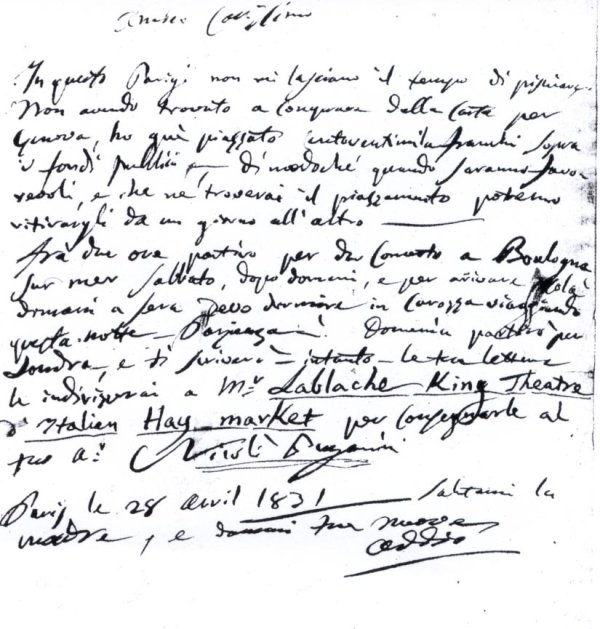 Amico Carissimo
In questo Parigi non mi lasciano il tempo di
Non avendo trovato a Comprare della Carta per
Genova, ho quì piazzato centoventimila franchi sopra
i fondi publici, e di modoché quando saranno favo
revoli, e che ne troverai il piazzamento potremo
ritirargli da un giorno all'altro
Frà due ore partirò per dar Concerto a Boulogna
sur mer Sabbato, dopo domani, e per arrivare colà
domani a sera devo dormire in Carozza viaggiando
questa notte. Domenica partirò per
Londra, e ti scriverò intanto le tue lettere
le indirizzerai a Mr. Lablache King Theatre
Italien Hay market per consegnarle al
tuo a.º Nicolò Paganini
Parigi le 28 avril 1831 Salutami la
madre, e tue nuove
addio